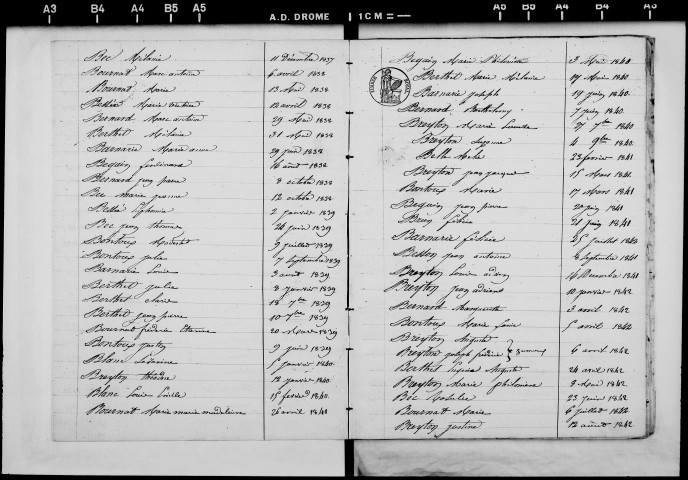 A3 B4 A4 B5 A5 A.D. DROME 1 CM A5 B5 A4 B4 A3
Bec Mélanie 11 décembre 1837
Bournat Marc antoine 6 avril 1838
Bournat Marie 13 Mai 1838
Marie 12 avril 1838
Bernard Marc antoine 29 Mai 1838
Berthet Mélanie 31 Mai 1838
Barnarie Marie anne 29 juin 1838
Bequin ferdinand 16 août 1838
Bernard jean pierre 8 octobre 1838
Bec Marie jeanne 12 octobre 1838
2 janvier 1839
Bec jean thomas 24 juin 1839
Bontoux 9 juillet 1839
Bontoux julie 7 septembre 1839
Barnarie Louise 3 août 1839
Berthet julie 8 janvier 1839
Berthet 18 7bre 1839
Berthet jean pierre 10 7bre 1839
Bournat frédéric Etienne 20 Mars 1839
Bontoux 9 juin 1839
Blanc 5 janvier 1840
Breyton théodore 12 janvier 1840
Blanc Louise 15 février 1840
Bournat Marie marie madeleine 26 avril 1840
Bequin Marie Philumise 3 Mai 1840
Berthet Marie Mélanie 17 Mai 1840
Barnarie joseph 19 juin 1840
Bernard Barthelemy 7 juin 1840
Breyton Marie 27 7bre 1840
Breyton 4 9bre 1840
23 février 1841
Breyton jean jacques 15 Mars 1841
Bontoux Marie 17 Mars 1841
Bequin jean pierre 20 juin 1841
21 juin 1841
Barnarie 25 juillet 1841
jean antoine 8 septembre 1841
Breyton Louis 16 décembre 1841
Breyton jean adrien 10 janvier 1842
Bernard Marguerite 3 avril 1842
Bontoux Marie Louise 5 avril 1842
Breyton Auguste
Breyton joseph frédéric } jumeaux 6 avril 1842
Berthet Auguste 24 avril 1842
Breyton Marie philomène 8 Mai 1842
Bec Rosalie 23 juin 1842
Bournat Marie 6 juillet 1842
Breyton justine 12 août 1842